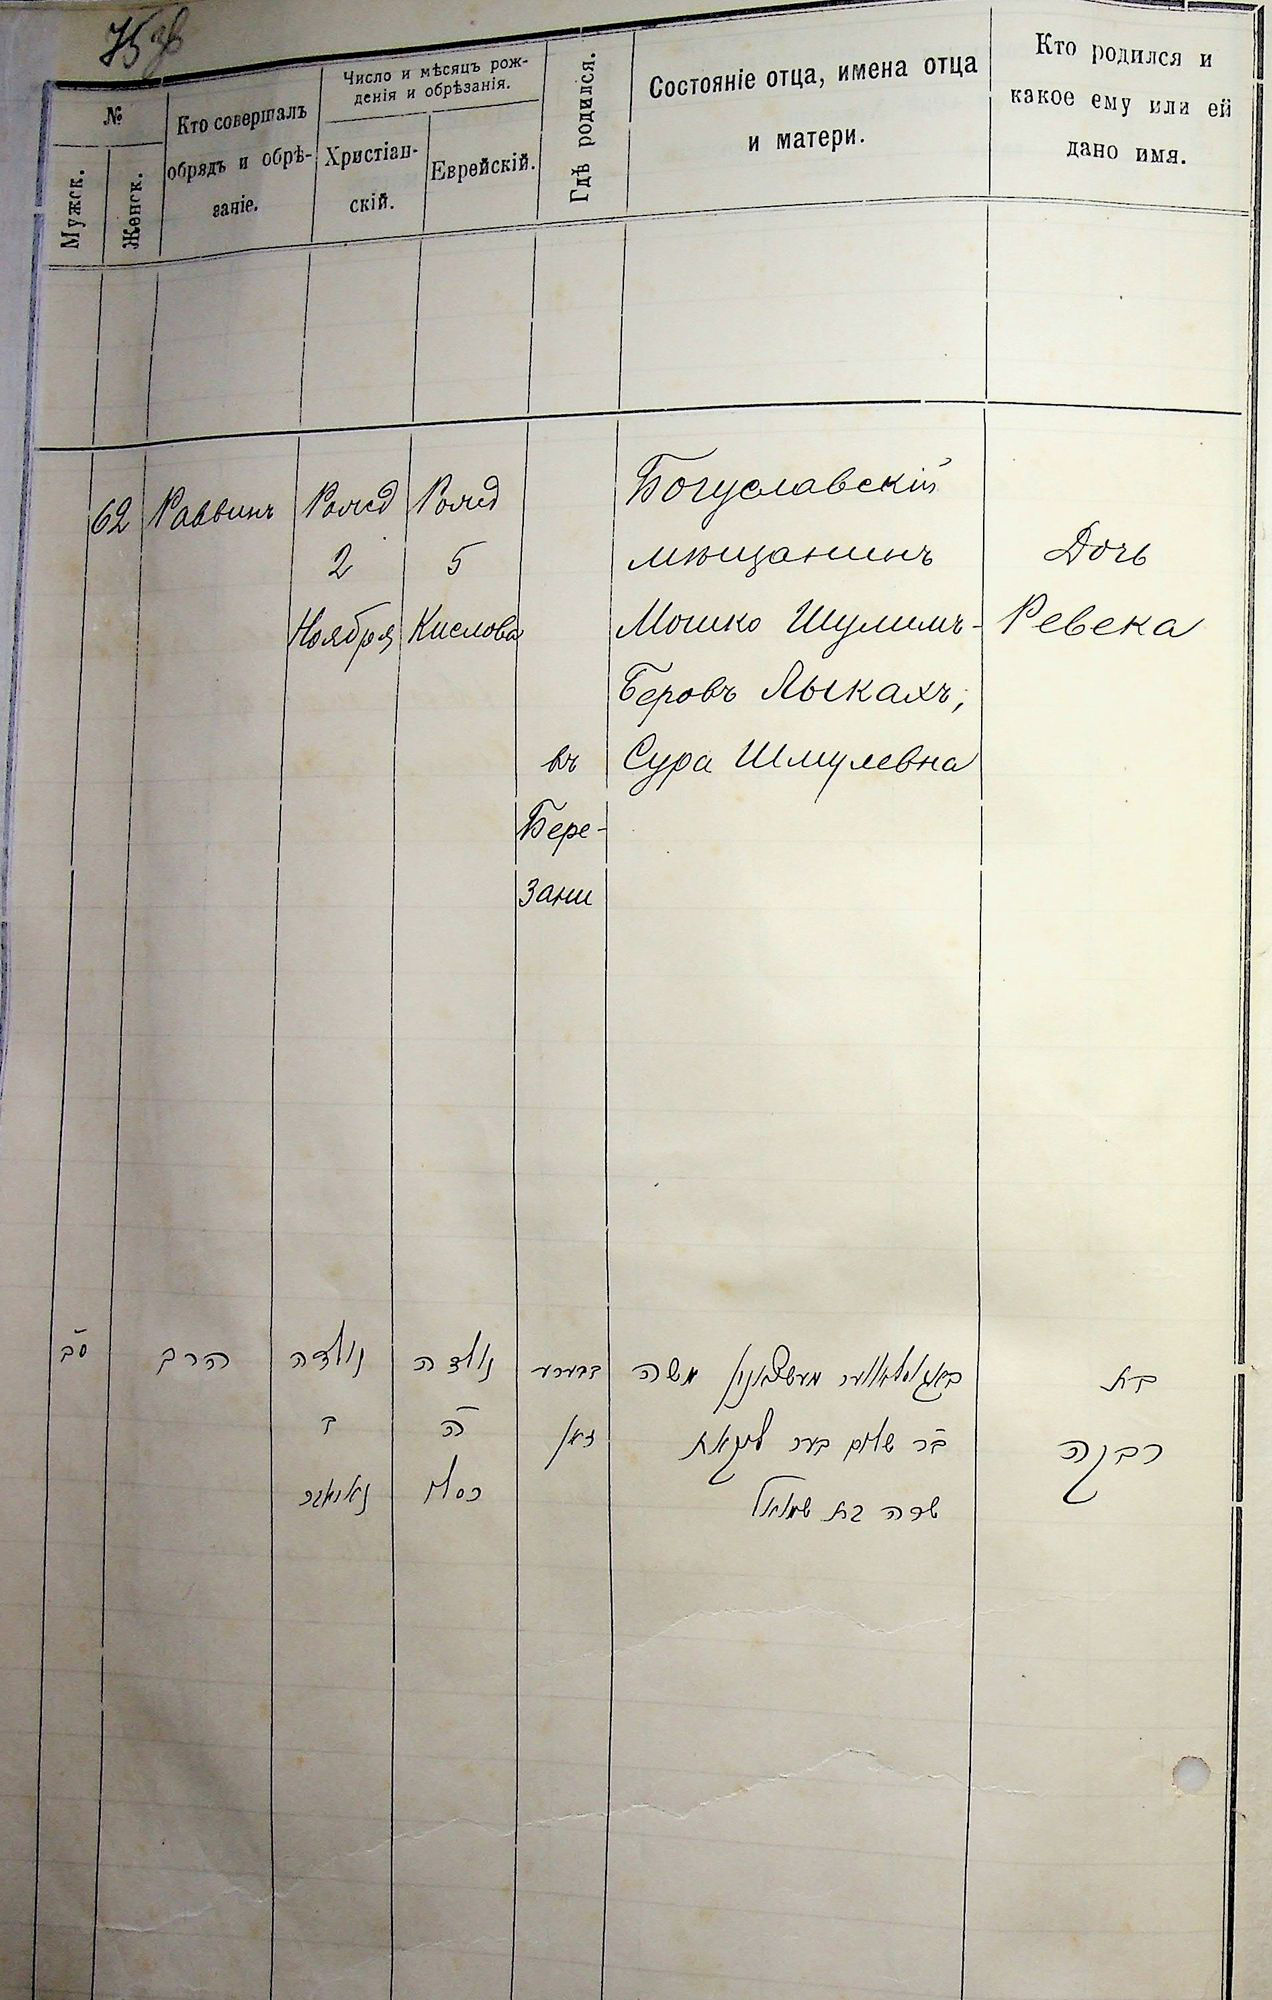 75 об
№
Мужск.
Женск.
Кто совершалъ
обрядъ и обрѣ-
заніе.
Число и мѣсяцъ рож-
денія и обрѣзанія.
Христіан-
скій.
Еврейскій.
Гдѣ родился.
Состояніе отца, имена отца
и матери.
Кто родился и
какое ему или ей
дано имя.
62
Раввинъ
Рожд
2
Ноября
Рожд
5
Кислова
въ
Бере-
зани
Богуславскій
мѣщанинъ
Мошко Шулимъ-
Беровъ Лыкахъ,
Сура Шмулевна
Дочь
Ревека
סב
הרב
נולדה
ב
נאוואבר
נולדה
ה
כסלו
בבערע
זאן
משה
בר שלום בער
שרה בת שמואל
בת
רבקה